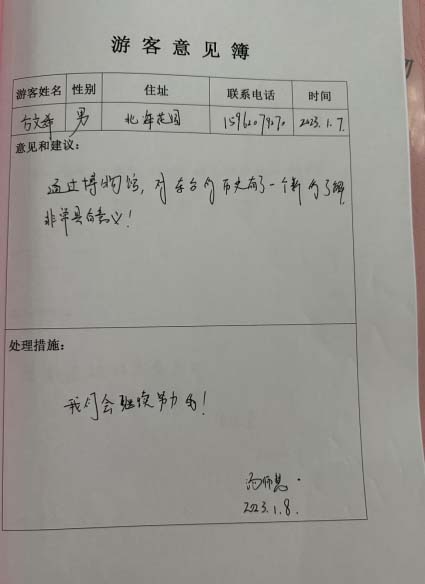 游客意见簿
游客姓名 性别 住址 联系电话 时间
方文 男 北海花园 2023.1.7.
意见和建议：
通过博物馆，对东台的历史有了一个新的了解
非常具有意义！
处理措施：
我们会继续努力的！
2023.1.8.